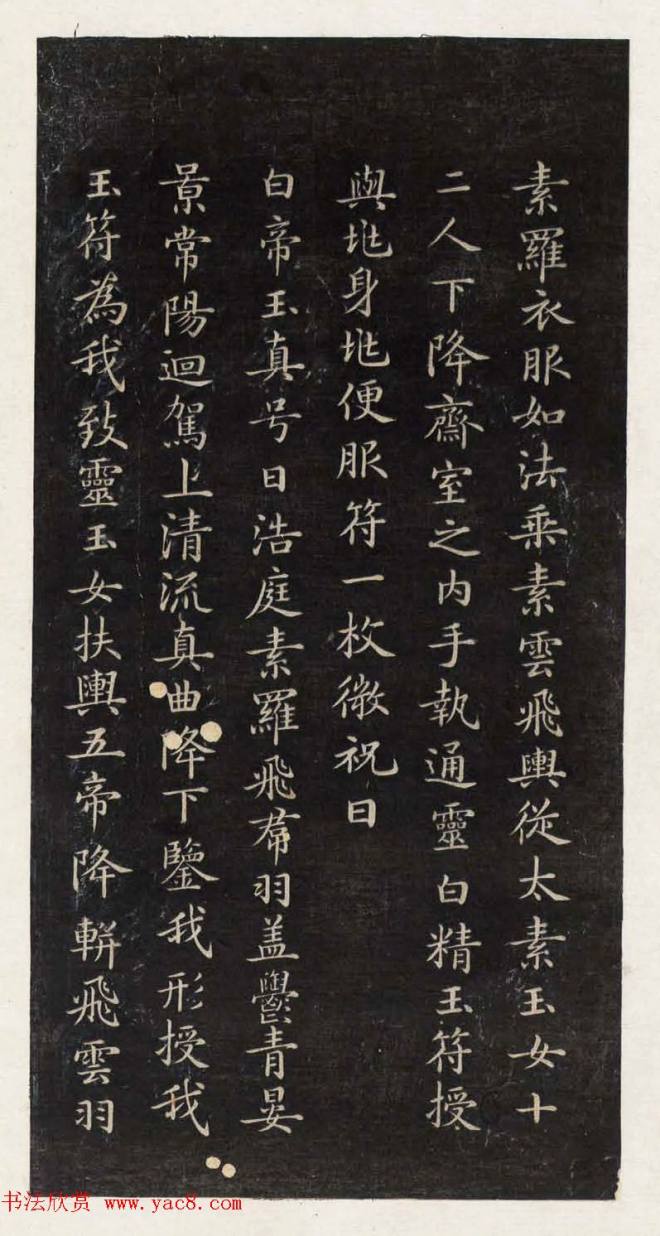 素羅衣服如法乘素雲飛輿從太素玉女十
二人下降齋室之內手執通靈白精玉符授
與地身地便服符一枚微祝曰
白帝玉真号曰浩庭素羅飛帬羽盖鬱青晏
景常陽迴駕上清流真曲降下鑒我形授我
玉符為我致靈玉女扶輿五帝降軿飛雲羽
书法欣赏 www.yac8.com